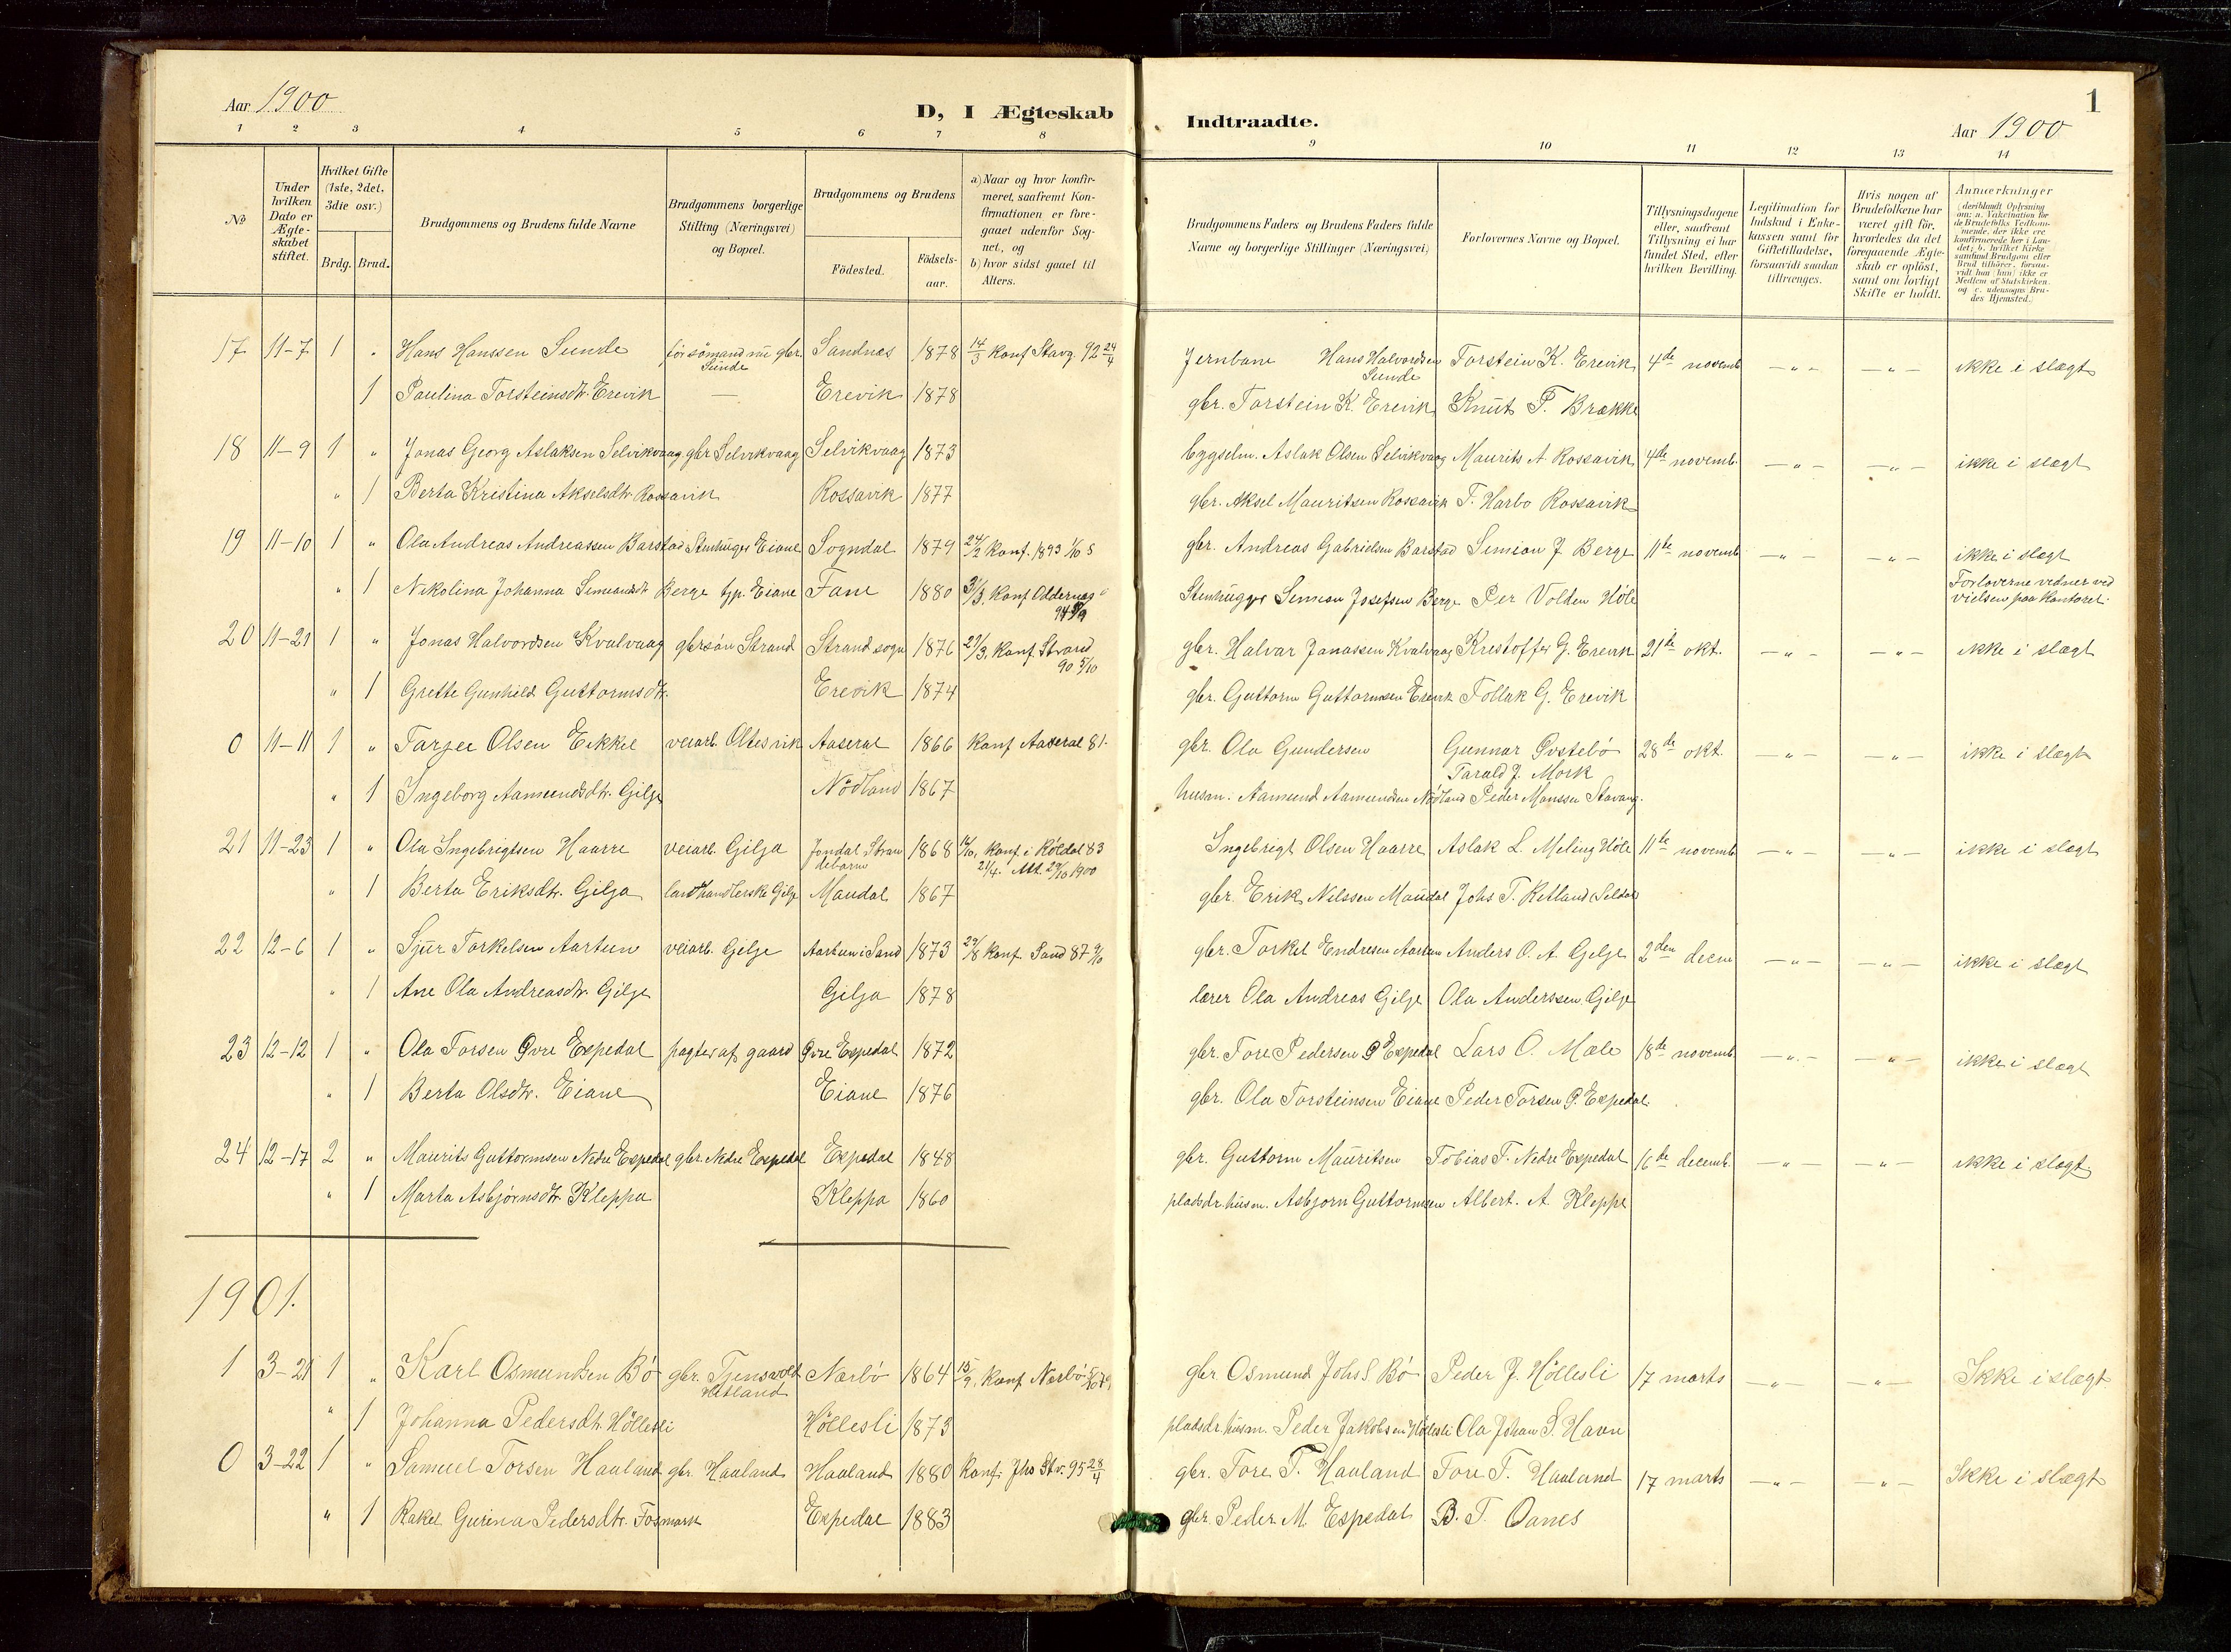 Aar 1900
D, I Ægteskab Indtraadte.
1
Aar 1900
1 2 3 4 5 6 7 8 9 10 11 12 13 14
№
Under hvilken Dato er Ægteskabet stiftet.
Hvilket Gifte (1ste, 2det, 3die osv.)
Brdg. Brud.
Brudgommens og Brudens fulde Navne
Brudgommens borgerlige Stilling (Næringsvei) og Bopæl.
Brudgommens og Brudens
Födested.
Födsels-aar.
a) Naar og hvor konfirmeret, saafremt Konfirmationen er foregaaet udenfor Sognet, og
b) hvor sidst gaaet til Alters.
Brudgommens Faders og Brudens Faders fulde Navne og borgerlige Stillinger (Næringsvei)
Forlovernes Navne og Bopæl.
Tillysningsdagene eller, saafremt Tillysning ei har fundet Sted, efter hvilken Bevilling.
Legitimation for Indskud i Enkekassen samt for Giftetilladelse, forsaavidt saadan tiltrænges.
Hvis nogen af Brudefolkene har været gift för, hvorledes da det foregaaende Ægteskab er oplöst, samt om lovligt Skifte er holdt.
Anmærkninger (deriblandt Oplysning om: a. Vakcination for de Brudefolks Vedkommende, der ikke ere konfirmerede her i Landet; b. hvilket Kirkesamfund Brudgom eller Brud tilhörer, forsaavidt han (hun) ikke er Medlem af Statskirken. og c. udensogns Brudes Hjemsted.)
17 11-7 1 „ Hans Hanssen Sunde för sömand nu gbr. Sunde Sandnes 1878 14/3 Konf Stavg. 92 24/4 Jernbane Hans Halvordsen Sunde Torstein K. Erevik 4de novemb —„— —„— ikke i slægt
1 Paulina Torsteinsdtr. Erevik — Erevik 1878 gbr. Torstein K. Erevik Knut T. Brække
18 11-9 1 „ Jonas Georg Aslaksen Selvikvaag gbr Selvikvaag Selvikvaag 1873 byggselm. Aslak Olsen Selvikvaag Maurits A. Rossavik 4de novemb. —„— —„— ikke i slægt
„ 1 Berta Kristina Akselsdtr. Rossavik Rossavik 1877 gbr. Aksel Mauritsen Rossavik T. Harbo Rossavik
19 11-10 1 „ Ola Andreas Andreassen Barstad Stenhugger Eiane Sogndal 1879 24/2 Konf. 1893 1/10 S gbr. Andreas Gabrielsen Barstad Simion J Berge 11te novemb —„— —„— ikke i slægt
„ 1 Nikolina Johanna Simeonsdtr Berge tjp. Eiane Fane 1880 3/3. Konf Oddernes 94 Stenhugger Simion Josefsen Berge Per Volden Höle Forloverne vedner ved vielsen paa Kontoret.
20 11-21 1 „ Jonas Halvordsen Kvalvaag gbrsön Strand Strand sogn 1876 Konf. Strand 90 5/10 gbr. Halvar Jonassen Kvalvaag Kristoffer G. Erevik 21de okt. —„— —„— ikke i slægt
„ 1 Grette Gunhild Guttormsdtr. Erevik 1874 gbr. Guttorm Guttormsen Erevik Tollak G. Erevik
0 11-11 1 „ Tarjei Olsen Eikkel veiarb. Oltesvik Aaseral 1866 Konf Aaseral 81. gbr. Ola Gundersen Gunnar Øvstebö Tarald J. Mork 28de okt. —„— —„— ikke i slægt
„ 1 Ingeborg Aamundsdtr. Gilje Nödland 1867 husm. Aamund Aamundsen Nødland Peder Monssen Stavang.
21 11-23 1 „ Ola Ingebrigtsen Haarre veiarb. Gilja Jondal Strandebarm 1868 Konf. i Röldal 83 21/4. Att. 1900 Ingebrigt Olsen Haarre Aslak L. Meling Höle 11te novemb —„— —„— ikke i slægt
„ 1 Berta Eriksdtr. Gilja landhandlerske Gilje Maudal 1867 gbr. Erik Nilssen Maudal Johs T. Ketland Seldal
22 12-6 1 „ Sjur Torkelsen Aartun veiarb. Gilje Aartun i Sand 1873 Konf. Sand 87 gbr. Torkel Endresen Aartun Anders O. A. Gilje 2den decm —„— —„— ikke i slægt
„ 1 Ane Ola Andreasdtr. Gilje Gilja 1878 lærer Ola Andreas Gilje Ola Anderssen Gilje
23 12-12 1 „ Ola Torsen Øvre Espedal pagter af gaard Øvre Espedal 1872 gbr. Tore Pedersen Ø Espedal Lars O. Mæle 18de novemb —„— —„— ikke i slægt
„ 1 Berta Olsdtr. Eiane Eiane 1876 gbr. Ola Torsteinsen Eiane Peder Torsen Ø. Espedal.
24 12-17 2 „ Maurits Guttormsen Nedre Espedal gbr. Nedre Espedal Espedal 1848 gbr. Guttorm Mauritsen Tobias T. Nedre Espedal 16de decemb. —„— —„— ikke i slægt
„ 1 Marta Asbjørnsdtr. Kleppa Kleppa 1860 pladsdr. husm. Asbjorn Guttormsen Albert. A. Kleppe
1901.
1 3-21 1 „ Karl Osmundsen Bö gbr. Tjensvold Hetland Nærbö 1864 15/9. Konf Nærbö gbr Osmund Johs S Bö Peder J. Höllesli 17 marts —„— —„— Ikke i slægt
„ 1 Johanna Pedersdtr. Höllesli Höllesli 1873 pladsdr. husm. Peder Jakobsen Höllesli Ola Johan S. Havn
0 3-22 1 „ Samuel Torsen Hauland gbr. Hauland Hauland 1880 Konf. Jho Stv. 95 28/4 gbr. Tore T. Hauland Tore T. Hauland 17 marts —„— —„— Ikke i slægt
„ 1 Rakel Gurina Pedersdtr. Fosmark Espedal 1883 gbr. Peder M. Espedal B. T. Oanes